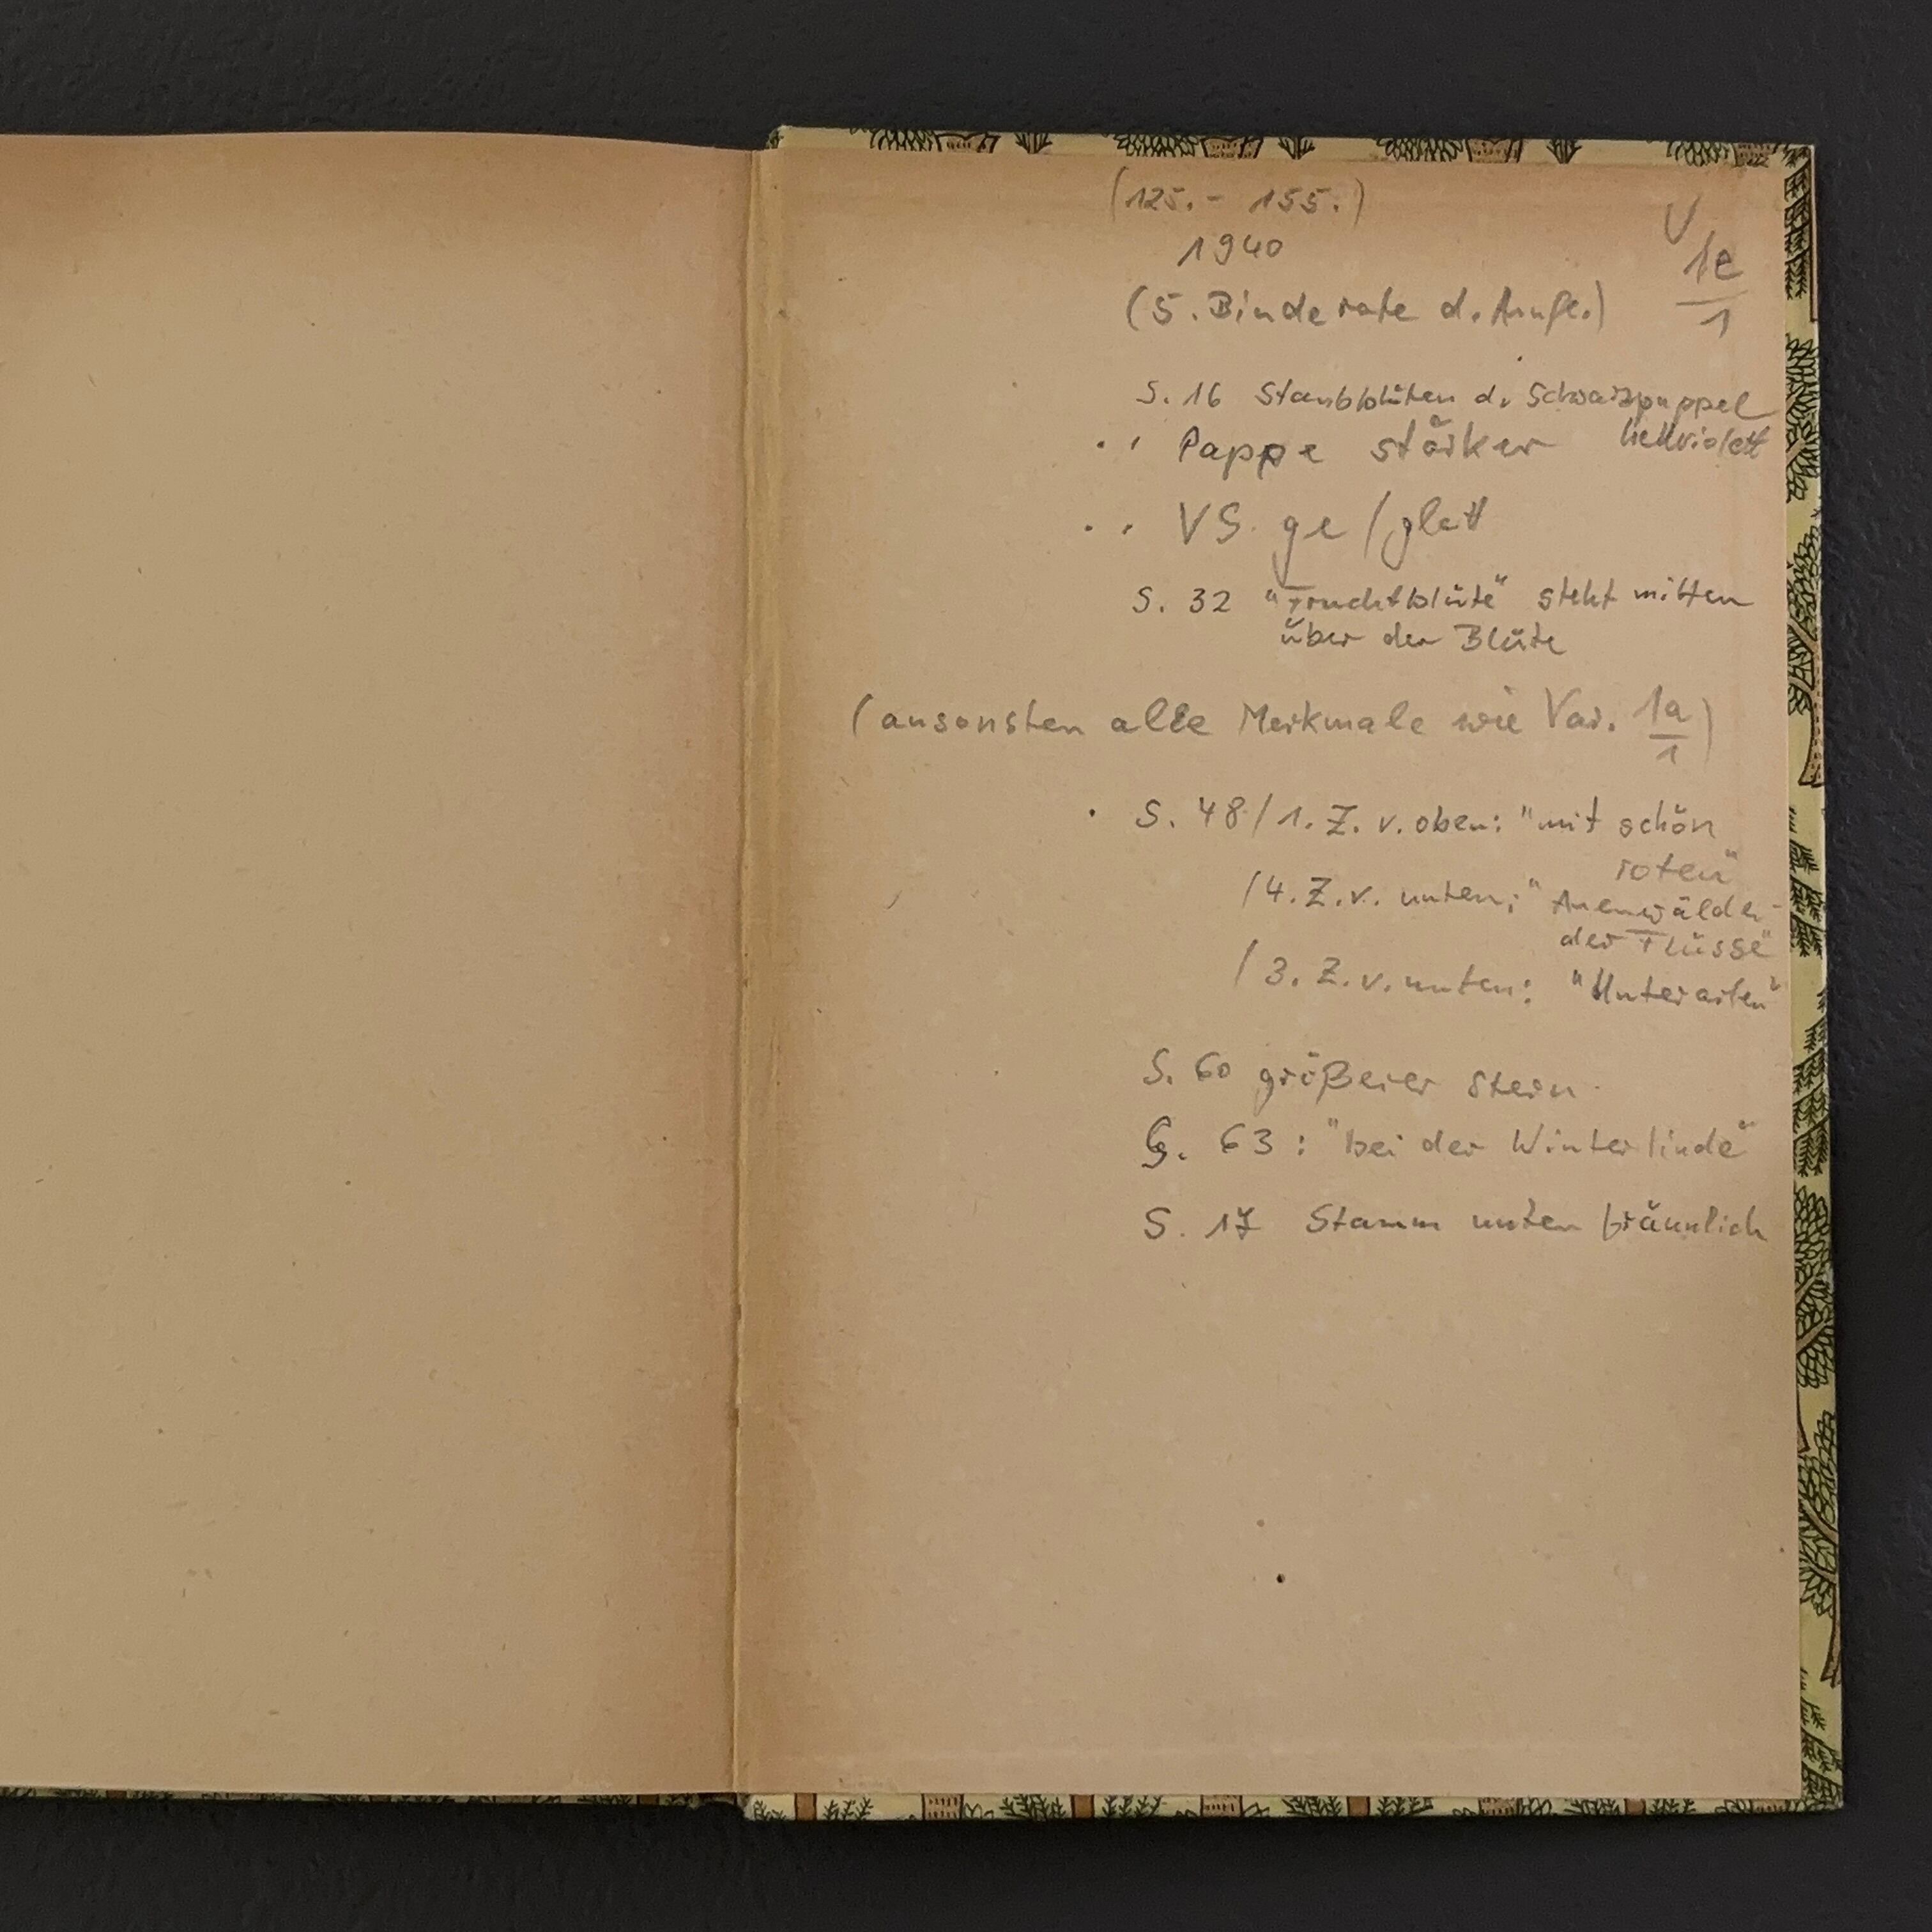 (125. - 155.)
V 1e/1
1940
(5. Binderate d. Aufl.)
S. 16 Staubblüten d. Schwarzpappel
hellviolett
Pappe stärker
VS. ge/glatt
S. 32 "Fruchtblüte" steht mitten
über der Blüte
(ansonsten alle Merkmale wie Var. 1a/1)
S. 48/1. Z. v. oben: "mit schön
roten"
/4. Z. v. unten: "Auenwälder
der Flüsse"
/3. Z. v. unten: "Unterarten"
S. 60 größerer Stern
S. 63: "bei der Winterlinde"
S. 17 Stamm unten bräunlich